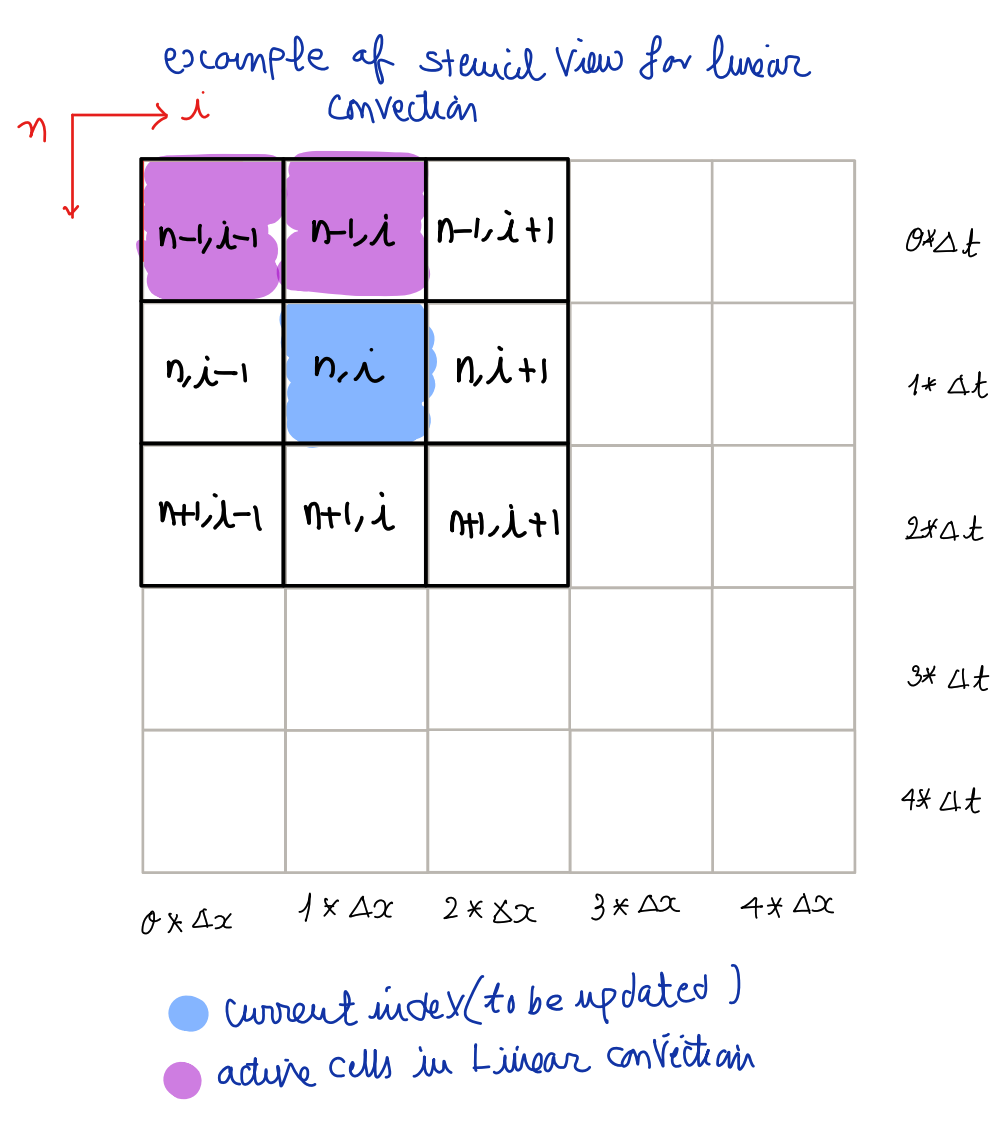 example of stencil view for linear
convection
n
i
n-1,i-1 n-1,i n-1,i+1
0*Δt
n,i-1 n,i n,i+1
1*Δt
n+1,i-1 n+1,i n+1,i+1
2*Δt
3*Δt
4*Δt
0*Δx 1*Δx 2*Δx 3*Δx 4*Δx
current index(to be updated)
active cells in Linear convection